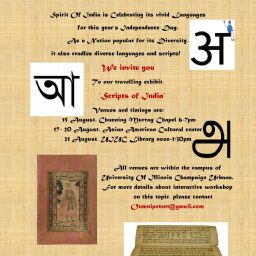 Spirit Of India is Celebrating its vivid Languages
for this year's Independence Day.
As a Nation popular for its Diversity,
it also cradles diverse languages and scripts!
अ
We invite you
आ
To our travelling exhibit,
'Scripts of India'
Venues and timings are:
15 August, Channing Murray Chapel 6-7pm
17- 20 August, Asian American Cultural center
21 August, UIUC Library noon-1:30pm
All venues are within the campus of
University Of Illinois Champaign Urbana.
For more details about interactive workshop
on this topic, please contact